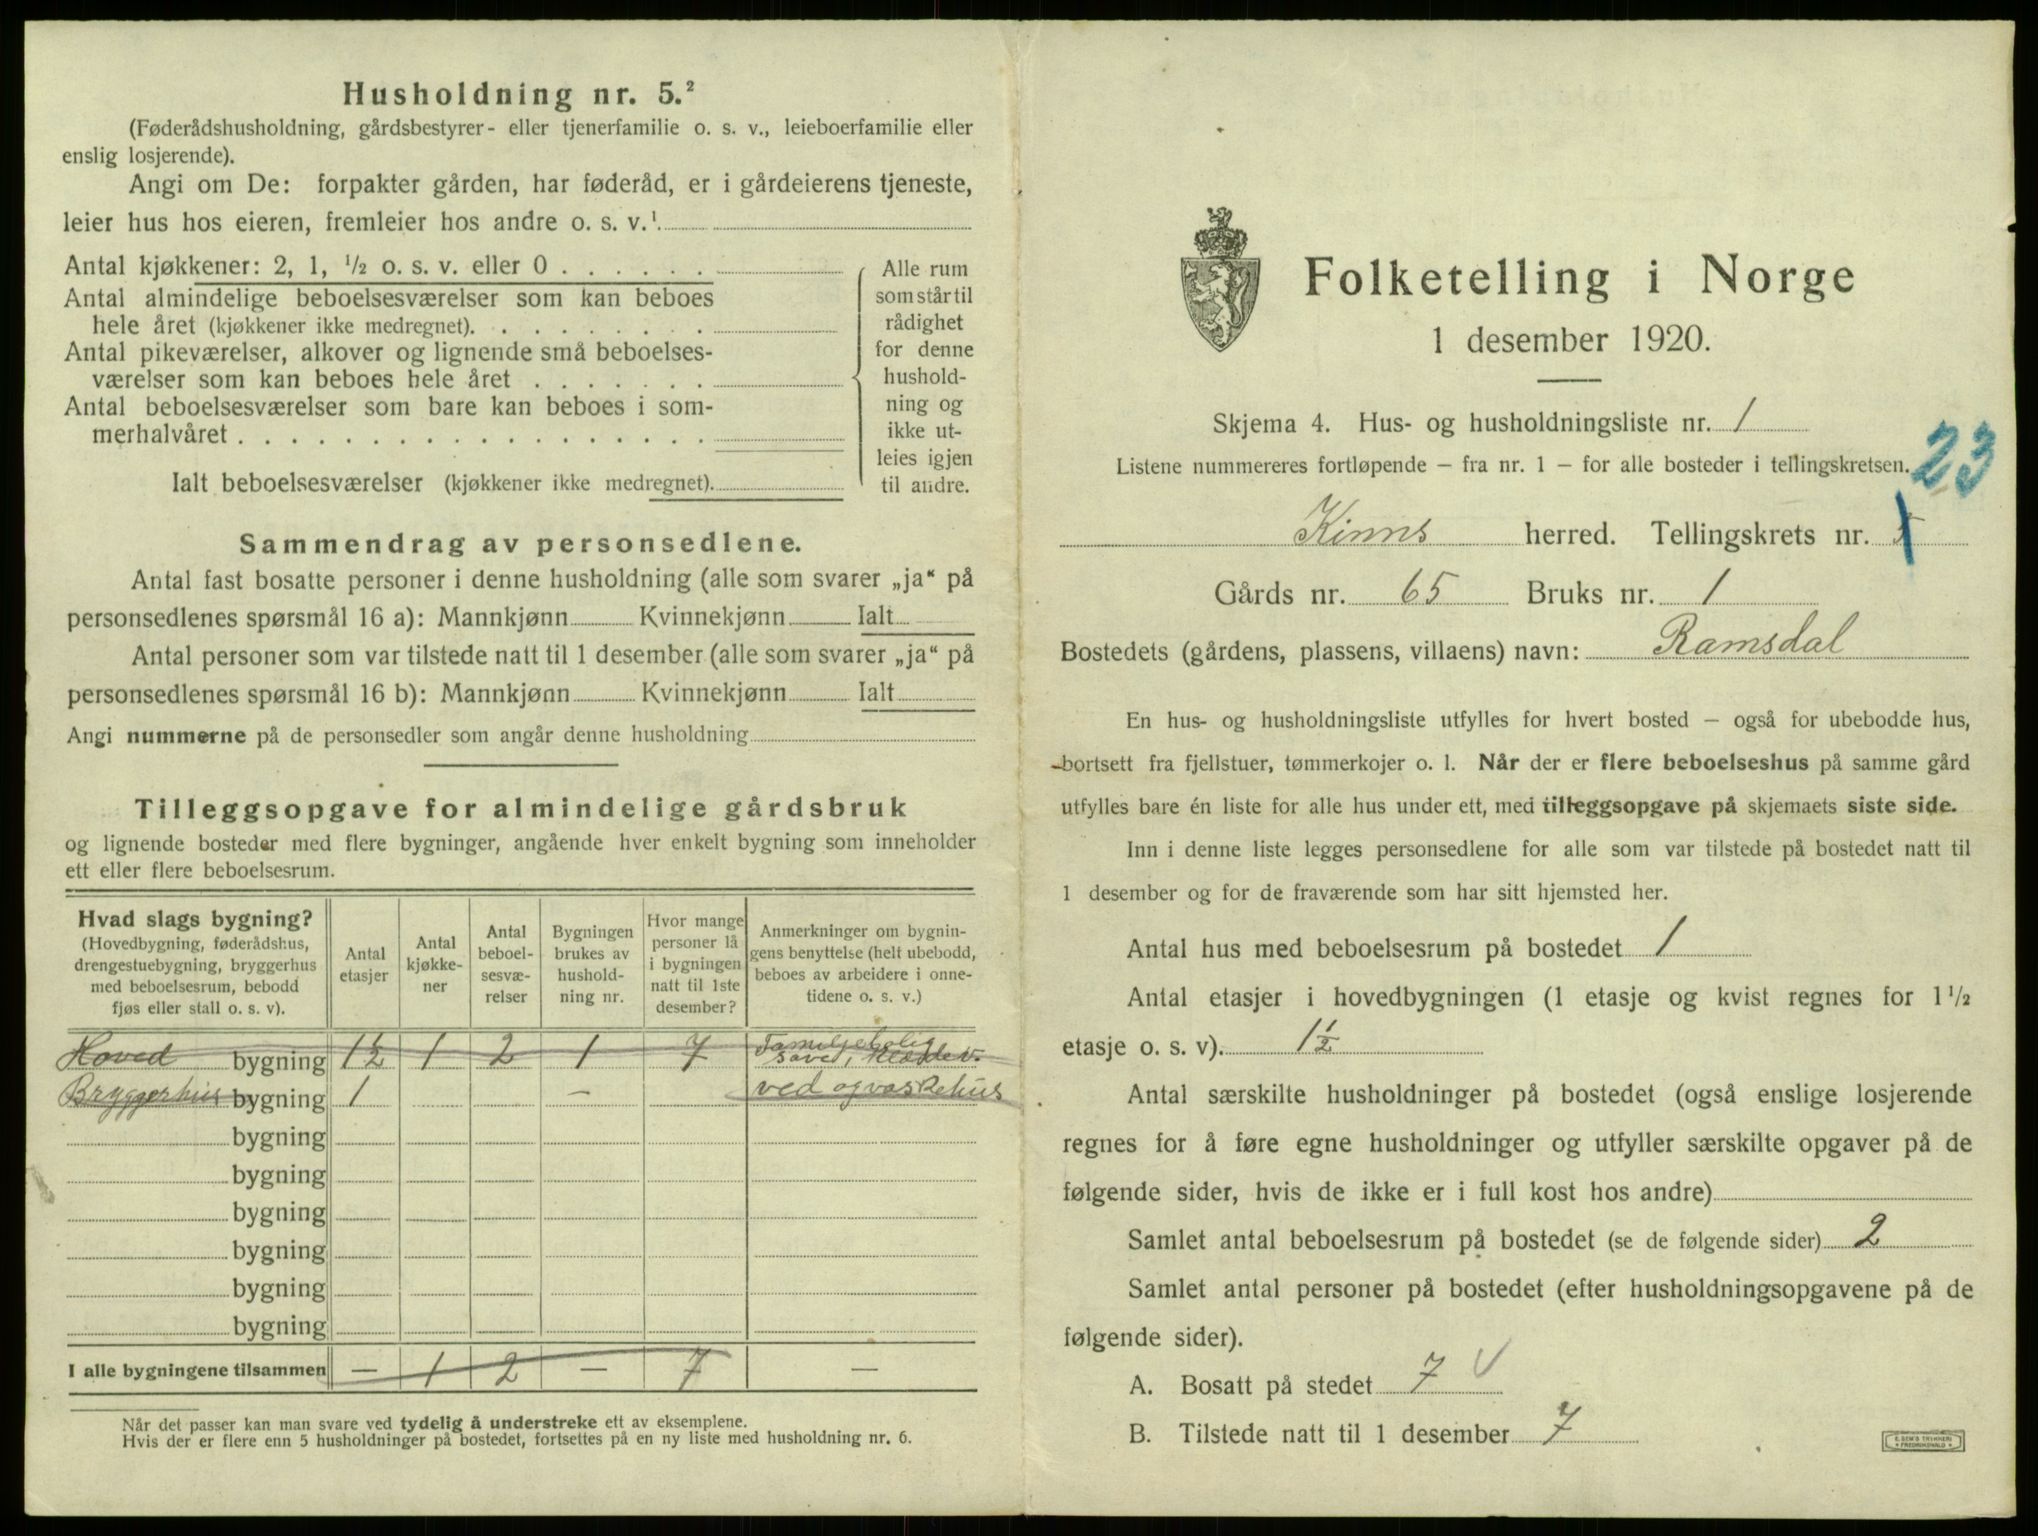 Husholdning nr. 5.²
(Føderådshusholdning, gårdsbestyrer- eller tjenerfamilie o. s. v., leieboerfamilie eller
enslig losjerende).
Angi om De: forpakter gården, har føderåd, er i gårdeierens tjeneste,
leier hus hos eieren, fremleier hos andre o. s. v.¹
Antal kjøkkener: 2, 1, ½ o. s. v. eller 0 . . . . . .
Antal almindelige beboelsesværelser som kan beboes
hele året (kjøkkener ikke medregnet). . . . . . . . .
Antal pikeværelser, alkover og lignende små beboelses-
værelser som kan beboes hele året . . . . . . .
Antal beboelsesværelser som bare kan beboes i som-
merhalvåret . . . . . . . . . . . . . . . . . .
Ialt beboelsesværelser (kjøkkener ikke medregnet).
Alle rum
som står til
rådighet
for denne
hushold-
ning og
ikke ut-
leies igjen
til andre.
Sammendrag av personsedlene.
Antal fast bosatte personer i denne husholdning (alle som svarer „ja“ på
personsedlenes spørsmål 16 a): Mannkjønn Kvinnekjønn Ialt
Antal personer som var tilstede natt til 1 desember (alle som svarer „ja“ på
personsedlenes spørsmål 16 b): Mannkjønn Kvinnekjønn Ialt
Angi nummerne på de personsedler som angår denne husholdning
Tilleggsopgave for almindelige gårdsbruk
og lignende bosteder med flere bygninger, angående hver enkelt bygning som inneholder
ett eller flere beboelsesrum.
Hvad slags bygning?
(Hovedbygning, føderådshus,
drengestuebygning, bryggerhus
med beboelsesrum, bebodd
fjøs eller stall o. s. v).
Antal
etasjer
Antal
kjøkke-
ner
Antal
beboel-
sesvæ-
relser
Bygningen
brukes av
hushold-
ning nr.
Hvor mange
personer lå
i bygningen
natt til 1ste
desember?
Anmerkninger om bygnin-
gens benyttelse (helt ubebodd,
beboes av arbeidere i onne-
tidene o. s. v.)
Hoved bygning 1½ 1 2 1 7 Familjebolig
Bryggerhus bygning 1 – ved og vaskehus
bygning
bygning
bygning
bygning
bygning
bygning
I alle bygningene tilsammen — 1 2 — 7 —
Når det passer kan man svare ved tydelig å understreke ett av eksemplene.
Hvis der er flere enn 5 husholdninger på bostedet, fortsettes på en ny liste med husholdning nr. 6.
Folketelling i Norge
1 desember 1920.
Skjema 4. Hus- og husholdningsliste nr. 1
Listene nummereres fortløpende – fra nr. 1 – for alle bosteder i tellingskretsen.
23
Kinns herred. Tellingskrets nr. 1
Gårds nr. 65 Bruks nr. 1
Bostedets (gårdens, plassens, villaens) navn: Ramsdal
En hus- og husholdningsliste utfylles for hvert bosted – også for ubebodde hus,
bortsett fra fjellstuer, tømmerkojer o. l. Når der er flere beboelseshus på samme gård
utfylles bare én liste for alle hus under ett, med tilleggsopgave på skjemaets siste side.
Inn i denne liste legges personsedlene for alle som var tilstede på bostedet natt til
1 desember og for de fraværende som har sitt hjemsted her.
Antal hus med beboelsesrum på bostedet 1
Antal etasjer i hovedbygningen (1 etasje og kvist regnes for 1½
etasje o. s. v). 1½
Antal særskilte husholdninger på bostedet (også enslige losjerende
regnes for å føre egne husholdninger og utfyller særskilte opgaver på de
følgende sider, hvis de ikke er i full kost hos andre)
Samlet antal beboelsesrum på bostedet (se de følgende sider) 2
Samlet antal personer på bostedet (efter husholdningsopgavene på de
følgende sider).
A. Bosatt på stedet 7 √
B. Tilstede natt til 1 desember 7
E. SEM'S TRYKKERI
FREDRIKSHALD